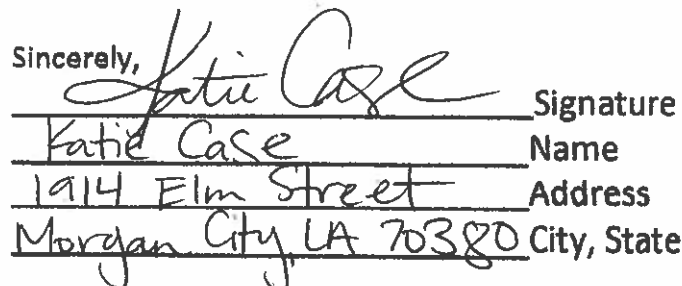 Sincerely,
Katie Case Signature
Katie Case Name
1914 Elm Street Address
Morgan City, LA 70380 City, State